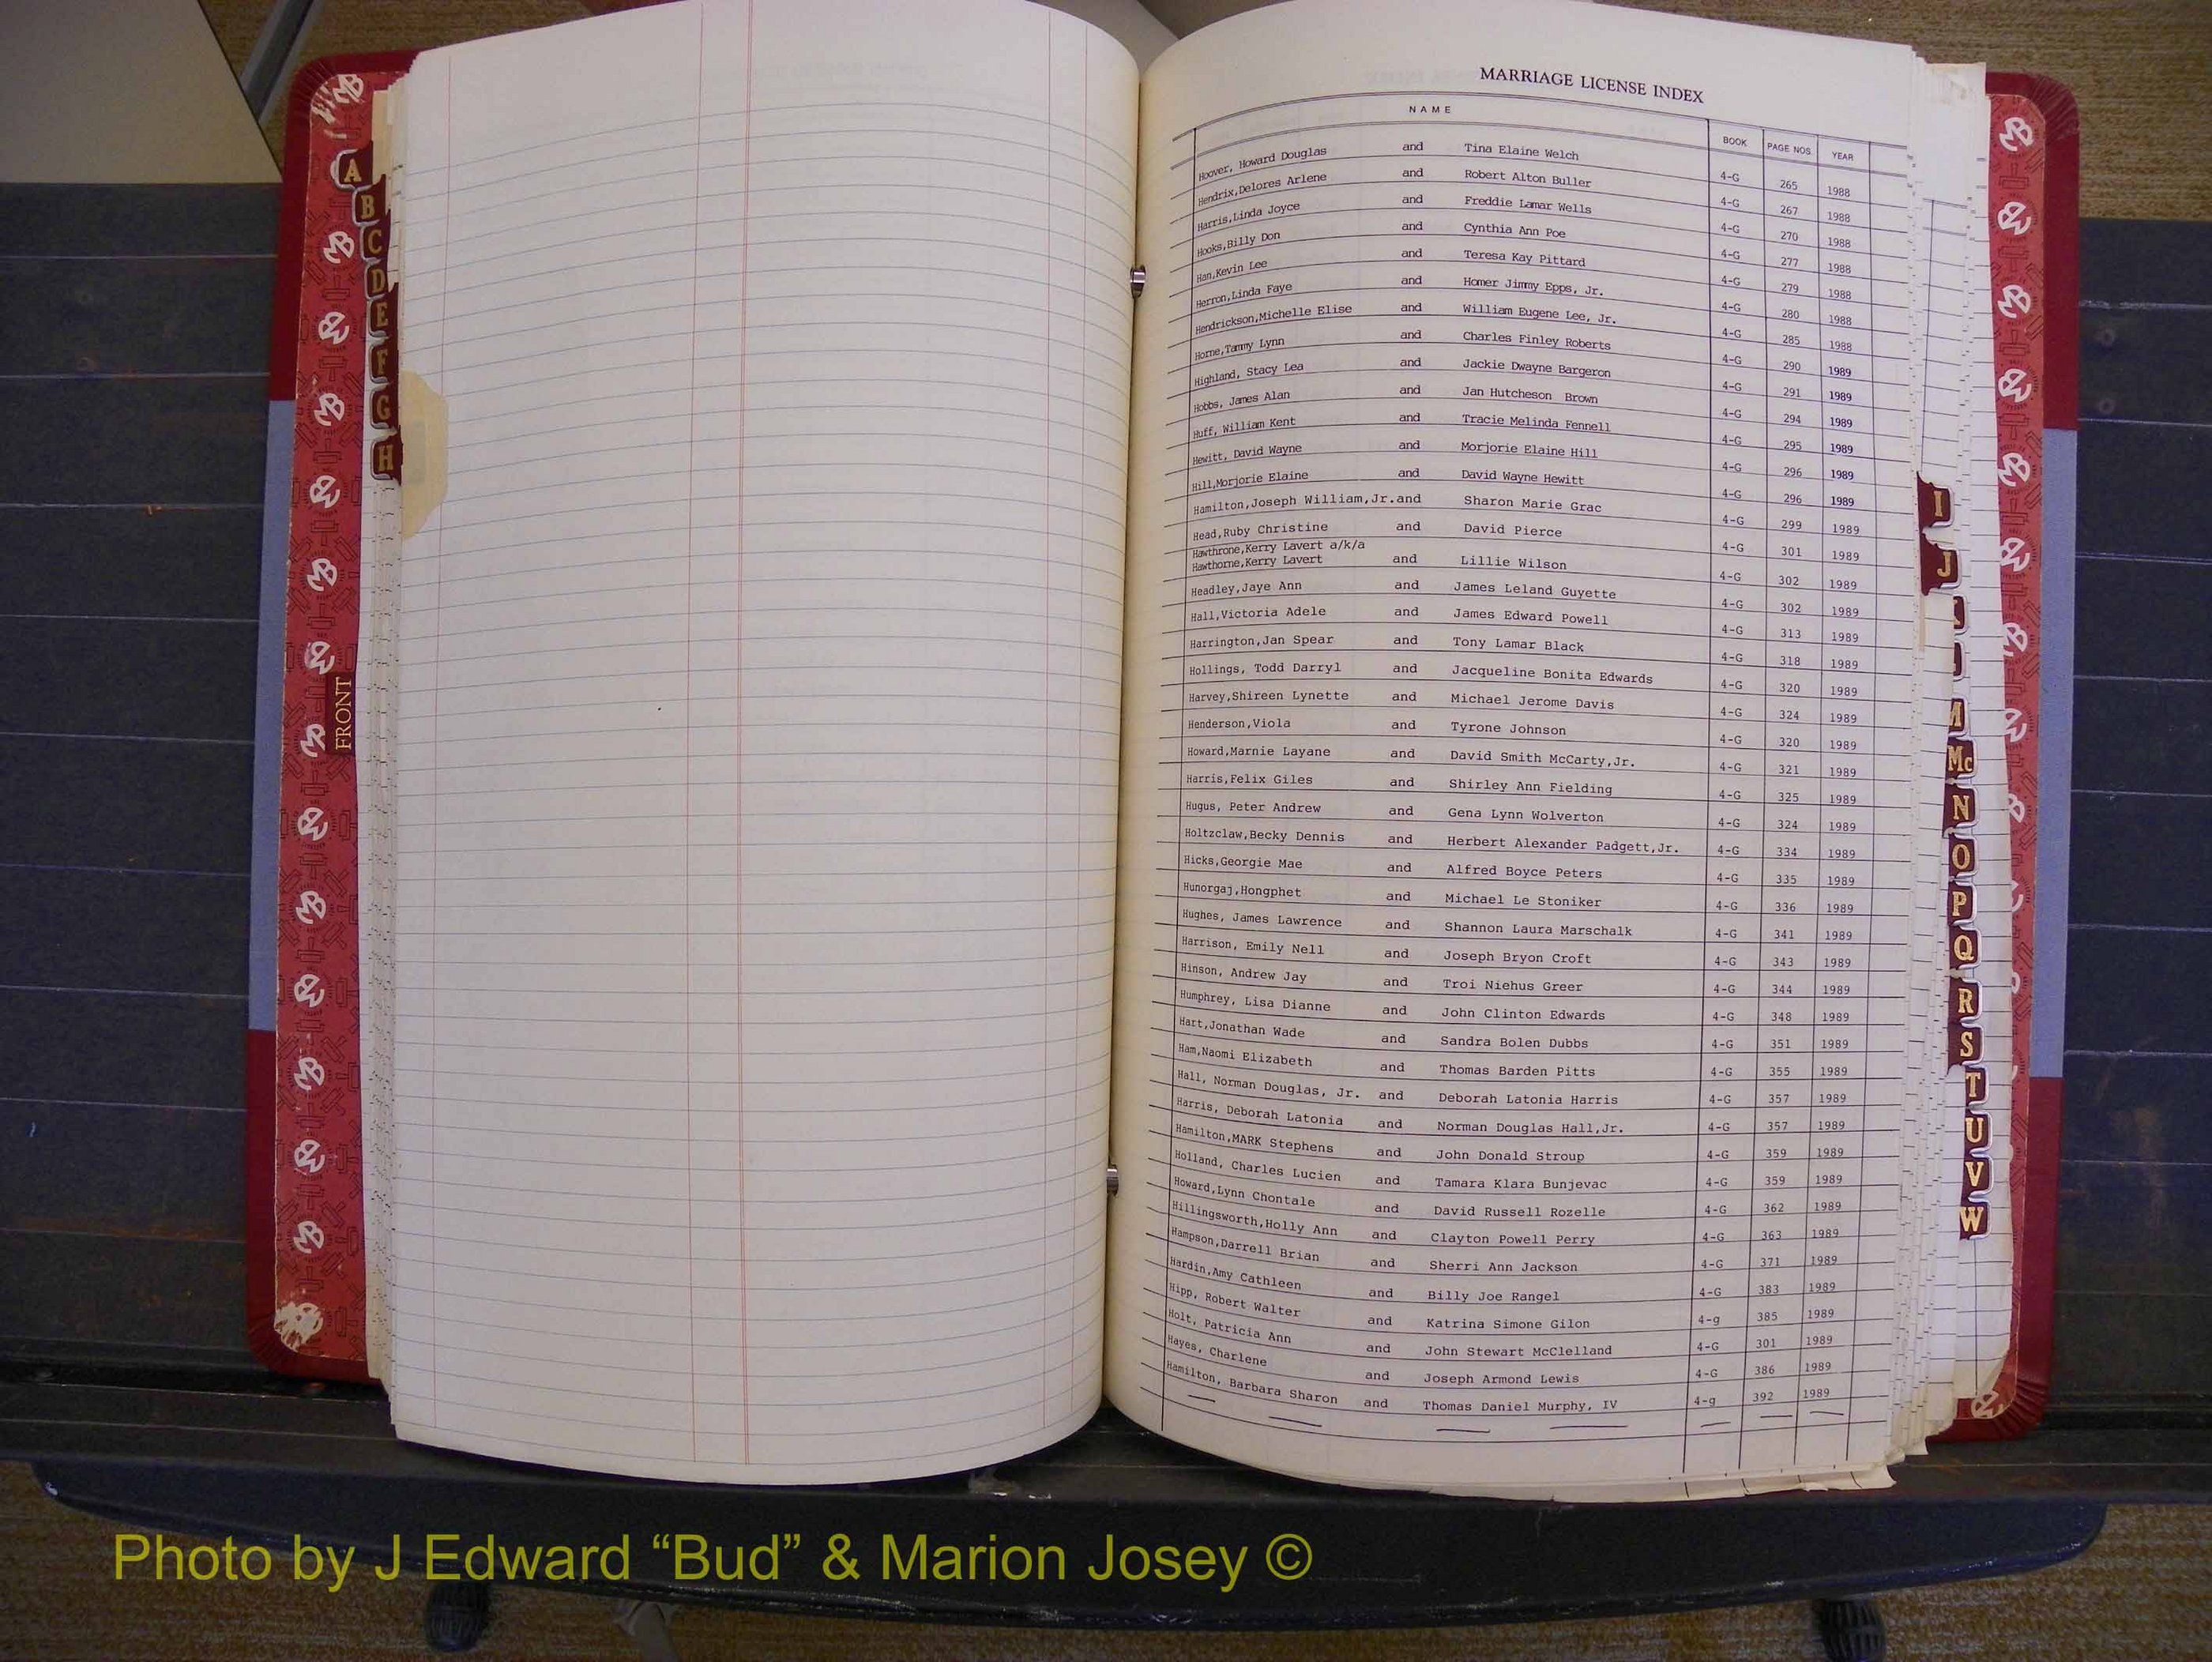 MARRIAGE LICENSE INDEX
NAME BOOK PAGE NOS. YEAR
Hoover, Howard Douglas and Tina Elaine Welch 4-G 265 1988
Hendrix,Delores Arlene and Robert Alton Buller 4-G 267 1988
Harris,Linda Joyce and Freddie Lamar Wells 4-G 270 1988
Hooks,Billy Don and Cynthia Ann Poe 4-G 277 1988
Han,Kevin Lee and Teresa Kay Pittard 4-G 279 1988
Herron,Linda Faye and Homer Jimmy Epps, Jr. 4-G 280 1988
Hendrickson,Michelle Elise and William Eugene Lee, Jr. 4-G 285 1988
Horne,Tammy Lynn and Charles Finley Roberts 4-G 290 1989
Highland, Stacy Lea and Jackie Dwayne Bargeron 4-G 291 1989
Hobbs, James Alan and Jan Hutcheson Brown 4-G 294 1989
Huff, William Kent and Tracie Melinda Fennell 4-G 295 1989
Hewitt, David Wayne and Morjorie Elaine Hill 4-G 296 1989
Hill,Morjorie Elaine and David Wayne Hewitt 4-G 296 1989
Hamilton,Joseph William,Jr.and Sharon Marie Grac 4-G 299 1989
Head,Ruby Christine and David Pierce 4-G 301 1989
Hawthrone,Kerry Lavert a/k/a
Hawthorne,Kerry Lavert and Lillie Wilson 4-G 302 1989
Headley,Jaye Ann and James Leland Guyette 4-G 302 1989
Hall,Victoria Adele and James Edward Powell 4-G 313 1989
Harrington,Jan Spear and Tony Lamar Black 4-G 318 1989
Hollings, Todd Darryl and Jacqueline Bonita Edwards 4-G 320 1989
Harvey,Shireen Lynette and Michael Jerome Davis 4-G 324 1989
Henderson,Viola and Tyrone Johnson 4-G 320 1989
Howard,Marnie Layane and David Smith McCarty,Jr. 4-G 321 1989
Harris,Felix Giles and Shirley Ann Fielding 4-G 325 1989
Hugus, Peter Andrew and Gena Lynn Wolverton 4-G 324 1989
Holtzclaw,Becky Dennis and Herbert Alexander Padgett,Jr. 4-G 334 1989
Hicks,Georgie Mae and Alfred Boyce Peters 4-G 335 1989
Hunorgaj,Hongphet and Michael Le Stoniker 4-G 336 1989
Hughes, James Lawrence and Shannon Laura Marschalk 4-G 341 1989
Harrison, Emily Nell and Joseph Bryon Croft 4-G 343 1989
Hinson, Andrew Jay and Troi Niehus Greer 4-G 344 1989
Humphrey, Lisa Dianne and John Clinton Edwards 4-G 348 1989
Hart,Jonathan Wade and Sandra Bolen Dubbs 4-G 351 1989
Ham,Naomi Elizabeth and Thomas Barden Pitts 4-G 355 1989
Hall, Norman Douglas, Jr. and Deborah Latonia Harris 4-G 357 1989
Harris, Deborah Latonia and Norman Douglas Hall,Jr. 4-G 357 1989
Hamilton,MARK Stephens and John Donald Stroup 4-G 359 1989
Holland, Charles Lucien and Tamara Klara Bunjevac 4-G 359 1989
Howard,Lynn Chontale and David Russell Rozelle 4-G 362 1989
Hillingsworth,Holly Ann and Clayton Powell Perry 4-G 363 1989
Hampson,Darrell Brian and Sherri Ann Jackson 4-G 371 1989
Hardin,Amy Cathleen and Billy Joe Rangel 4-G 383 1989
Hipp, Robert Walter and Katrina Simone Gilon 4-g 385 1989
Holt, Patricia Ann and John Stewart McClelland 4-G 301 1989
Hayes, Charlene and Joseph Armond Lewis 4-G 386 1989
Hamilton, Barbara Sharon and Thomas Daniel Murphy, IV 4-g 392 1989
A
B
C
D
E
F
G
H
FRONT
I
J
M
Mc
N
O
P
Q
R
S
T
U
V
W
Photo by J Edward “Bud” & Marion Josey ©